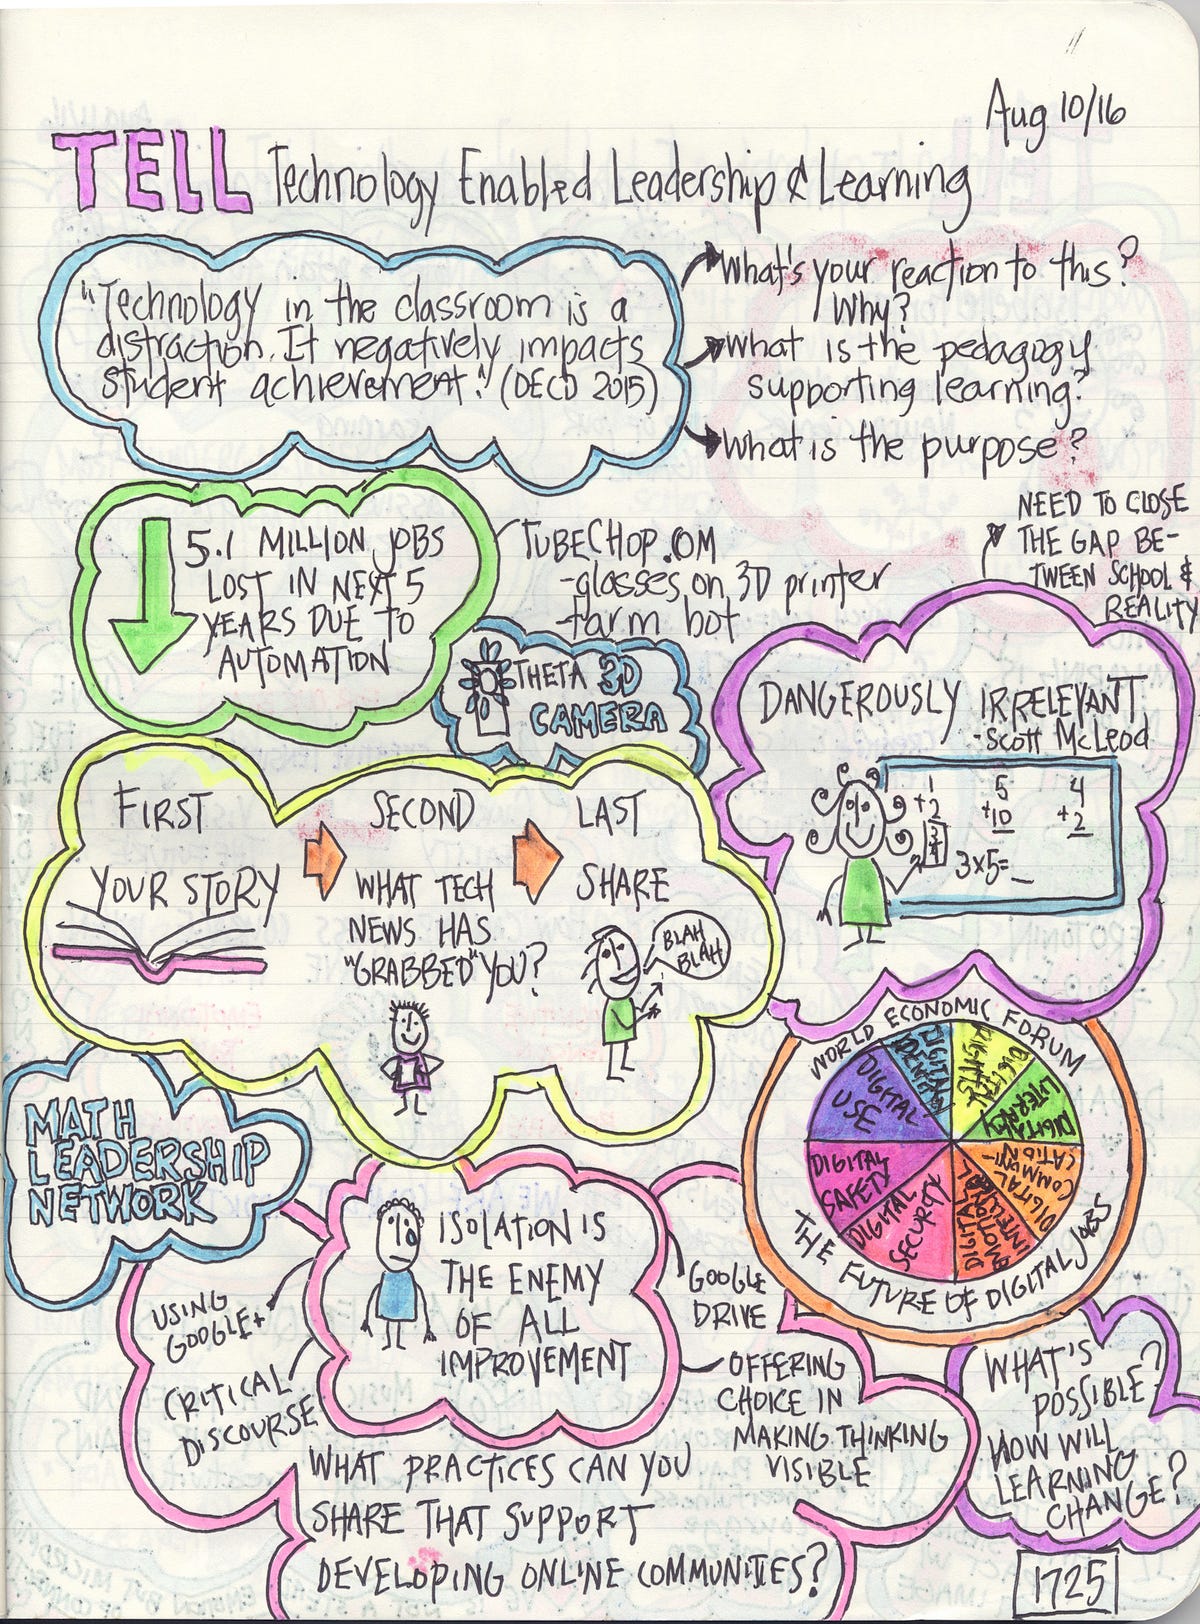 Aug 10/16
TELL Technology Enabled Leadership & Learning
"Technology in the classroom is a
distraction. It negatively impacts
student achievement." (OECD 2015)
What's your reaction to this?
Why?
What is the pedagogy
supporting learning?
What is the purpose?
5.1 MILLION JOBS
LOST IN NEXT 5
YEARS DUE TO
AUTOMATION
TUBECHOP.COM
-glasses on 3D printer
-farm bot
THETA 3D
CAMERA
NEED TO CLOSE
THE GAP BE-
TWEEN SCHOOL &
REALITY
DANGEROUSLY IRRELEVANT
-Scott McLeod
1
+2
3
5
+10
4
+2
3x5=_
FIRST
YOUR STORY
SECOND
WHAT TECH
NEWS HAS
"GRABBED" YOU?
LAST
SHARE
BLAH
BLAH
WORLD ECONOMIC FORUM
DIGITAL
IDENTITY
DIGITAL
RIGHTS
DIGITAL
LITERACY
DIGITAL
COMMUNI-
CATION
DIGITAL
EMOTIONAL
DIGITAL
SECURITY
DIGITAL
SAFETY
DIGITAL
USE
THE FUTURE OF DIGITAL JOBS
MATH
LEADERSHIP
NETWORK
ISOLATION IS
THE ENEMY
OF ALL
IMPROVEMENT
USING
GOOGLE+
CRITICAL
DISCOURSE
GOOGLE
DRIVE
OFFERING
CHOICE IN
MAKING THINKING
VISIBLE
WHAT PRACTICES CAN YOU
SHARE THAT SUPPORT
DEVELOPING ONLINE COMMUNITIES?
WHAT'S
POSSIBLE?
HOW WILL
LEARNING
CHANGE?
1725